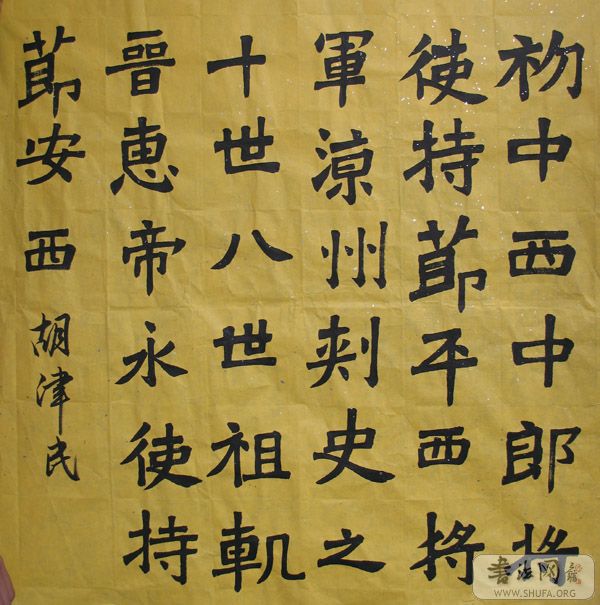 初中西中郎将
使持莭平西将
軍涼州刾史之
十世八世祖軌
晉恵帝永使持
莭安西
胡津民
書法网
WWW.SHUFA.ORG